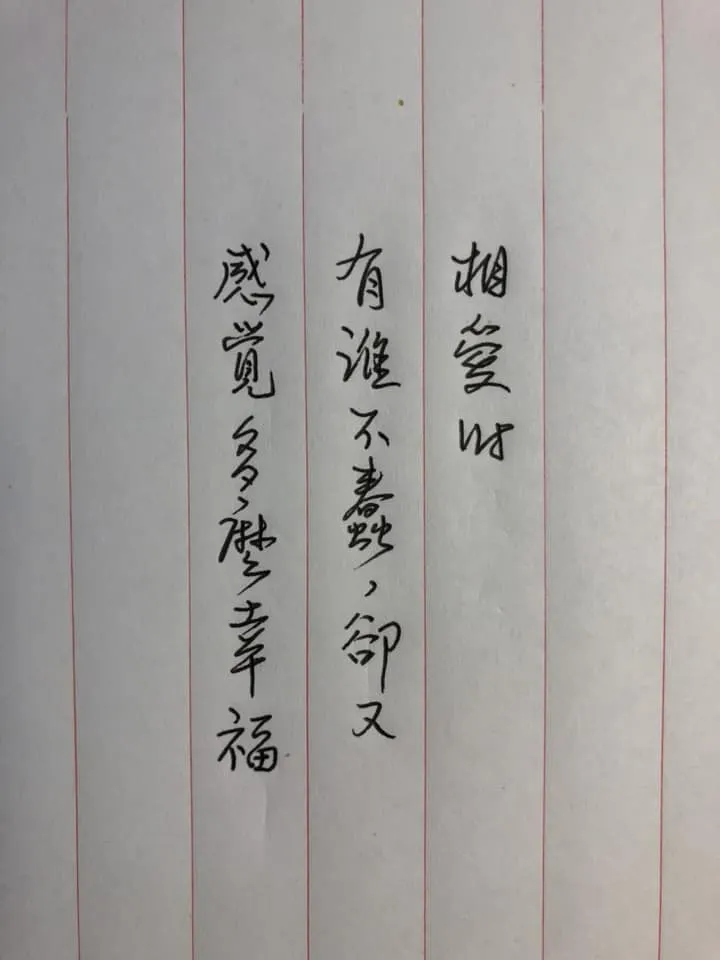 相愛時
有誰不蠢，卻又
感覺多麼幸福